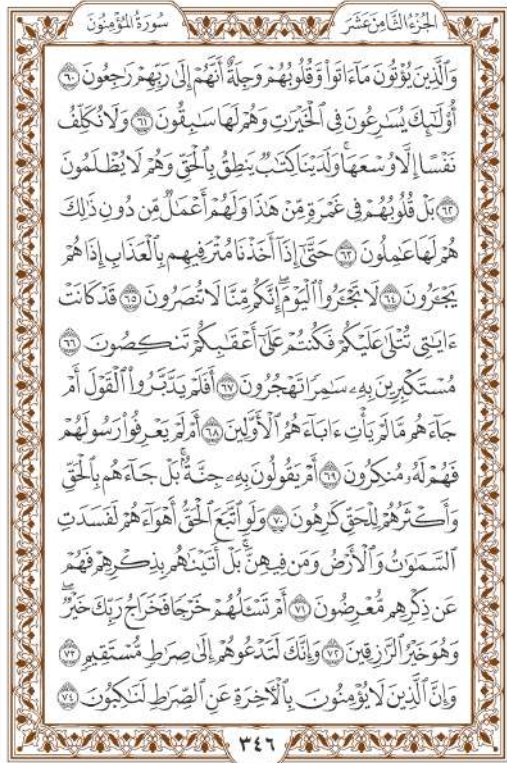 الجُزْءُ الثَّامِنَ عَشَرَ
سُورَةُ المُؤْمِنُونَ
وَٱلَّذِينَ يُؤْتُونَ مَآ ءَاتَوا۟ وَّقُلُوبُهُمْ وَجِلَةٌ أَنَّهُمْ إِلَىٰ رَبِّهِمْ رَٰجِعُونَ ٦٠
أُو۟لَٰٓئِكَ يُسَٰرِعُونَ فِى ٱلْخَيْرَٰتِ وَهُمْ لَهَا سَٰبِقُونَ ٦١ وَلَا نُكَلِّفُ
نَفْسًا إِلَّا وُسْعَهَا ۖ وَلَدَيْنَا كِتَٰبٌ يَنطِقُ بِٱلْحَقِّ وَهُمْ لَا يُظْلَمُونَ
٦٢ بَلْ قُلُوبُهُمْ فِى غَمْرَةٍ مِّنْ هَٰذَا وَلَهُمْ أَعْمَٰلٌ مِّن دُونِ ذَٰلِكَ
هُمْ لَهَا عَٰمِلُونَ ٦٣ حَتَّىٰٓ إِذَآ أَخَذْنَا مُتْرَفِيهِم بِٱلْعَذَابِ إِذَا هُمْ
يَجْـَٔرُونَ ٦٤ لَا تَجْـَٔرُوا۟ ٱلْيَوْمَ ۖ إِنَّكُم مِّنَّا لَا تُنصَرُونَ ٦٥ قَدْ كَانَتْ
ءَايَٰتِى تُتْلَىٰ عَلَيْكُمْ فَكُنتُمْ عَلَىٰٓ أَعْقَٰبِكُمْ تَنكِصُونَ ٦٦
مُسْتَكْبِرِينَ بِهِۦ سَٰمِرًا تَهْجُرُونَ ٦٧ أَفَلَمْ يَدَّبَّرُوا۟ ٱلْقَوْلَ أَمْ
جَآءَهُم مَّا لَمْ يَأْتِ ءَابَآءَهُمُ ٱلْأَوَّلِينَ ٦٨ أَمْ لَمْ يَعْرِفُوا۟ رَسُولَهُمْ
فَهُمْ لَهُۥ مُنكِرُونَ ٦٩ أَمْ يَقُولُونَ بِهِۦ جِنَّةٌۢ ۚ بَلْ جَآءَهُم بِٱلْحَقِّ
وَأَكْثَرُهُمْ لِلْحَقِّ كَٰرِهُونَ ٧٠ وَلَوِ ٱتَّبَعَ ٱلْحَقُّ أَهْوَآءَهُمْ لَفَسَدَتِ
ٱلسَّمَٰوَٰتُ وَٱلْأَرْضُ وَمَن فِيهِنَّ ۚ بَلْ أَتَيْنَٰهُم بِذِكْرِهِمْ فَهُمْ
عَن ذِكْرِهِم مُّعْرِضُونَ ٧١ أَمْ تَسْـَٔلُهُمْ خَرْجًا فَخَرَاجُ رَبِّكَ خَيْرٌ ۖ
وَهُوَ خَيْرُ ٱلرَّٰزِقِينَ ٧٢ وَإِنَّكَ لَتَدْعُوهُمْ إِلَىٰ صِرَٰطٍ مُّسْتَقِيمٍ ٧٣
وَإِنَّ ٱلَّذِينَ لَا يُؤْمِنُونَ بِٱلْءَاخِرَةِ عَنِ ٱلصِّرَٰطِ لَنَٰكِبُونَ ٧٤
٣٤٦